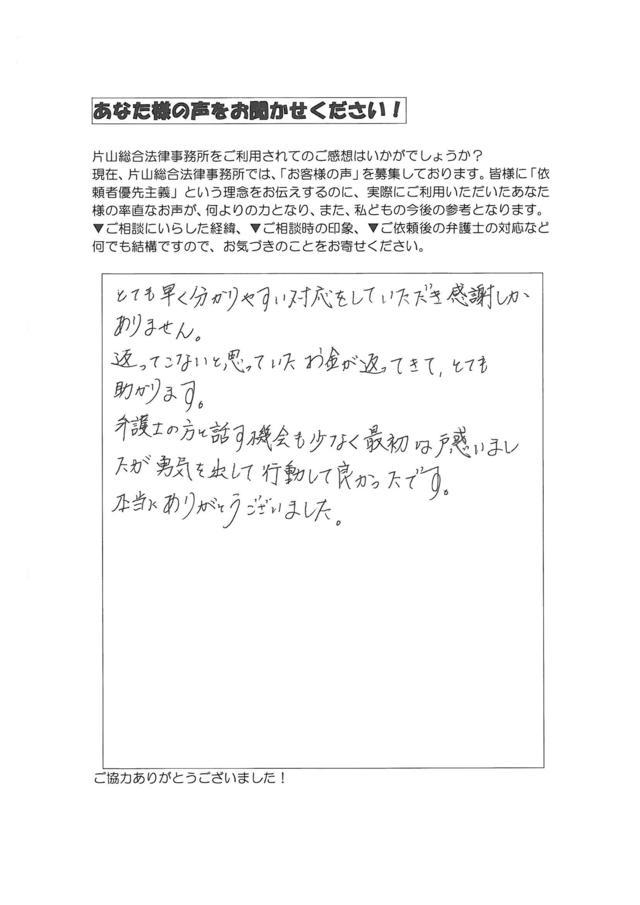 あなた様の声をお聞かせください！
片山総合法律事務所をご利用されてのご感想はいかがでしょうか？
現在、片山総合法律事務所では、「お客様の声」を募集しております。皆様に「依
頼者優先主義」という理念をお伝えするのに、実際にご利用いただいたあなた
様の率直なお声が、何よりの力となり、また、私どもの今後の参考となります。
▼ご相談にいらした経緯、▼ご相談時の印象、▼ご依頼後の弁護士の対応など
何でも結構ですので、お気づきのことをお寄せください。
とても早く分かりやすい対応をしていただき感謝しか
ありません。
返ってこないと思っていたお金が返ってきて、とても
助かります。
弁護士の方と話す機会も少なく最初は戸惑いまし
たが勇気を出して行動して良かったです。
本当にありがとうございました。
ご協力ありがとうございました！